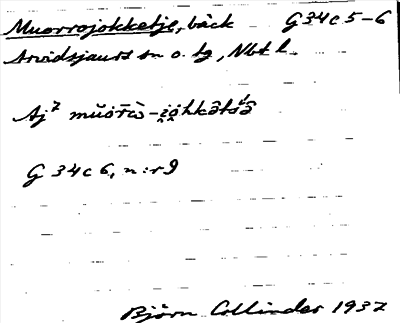 Muorrojokketje, bäck G34c5-6
Arvidsjaurs sn o. tg, Nbt l.
Aj² mŭor̄ò-i̯o̯hkət́šə̑
G 34c6, n:r9
Björn Collinder 1937